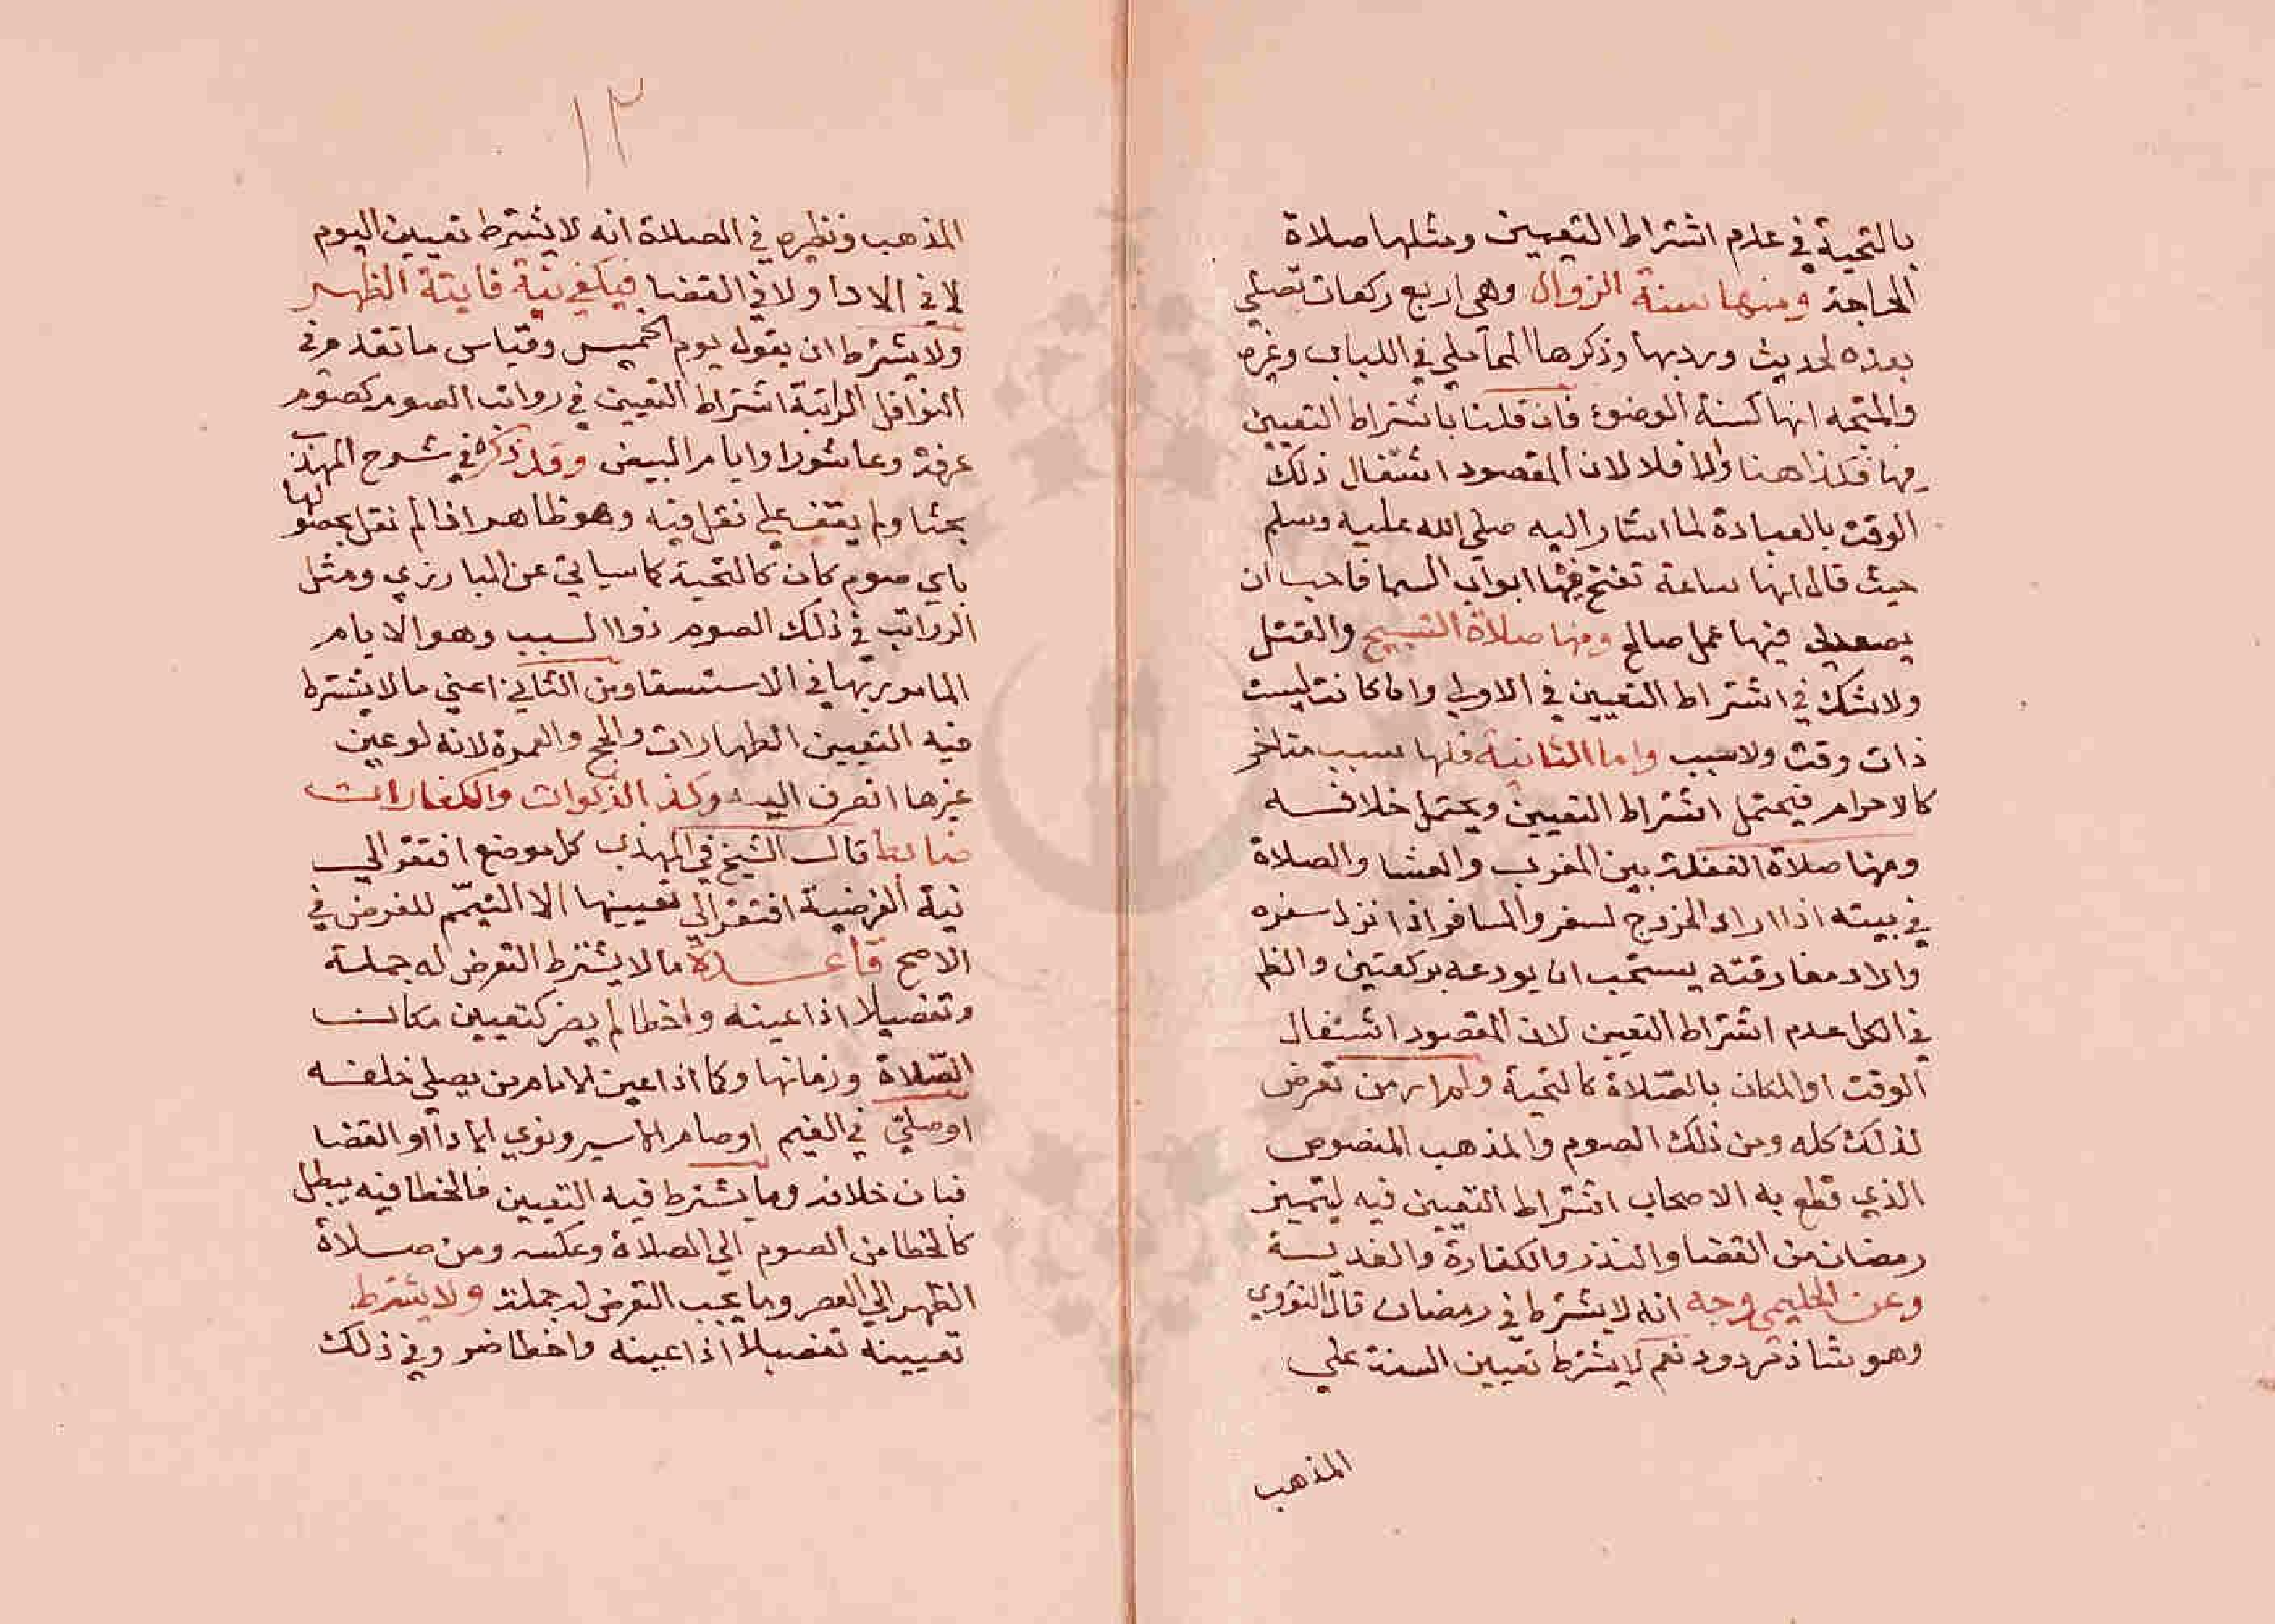 بالتحية في عدم اشتراط التعيين ومثلها صلاة
الحاجة ومنها سنة الزوال وهي اربع ركعات تصلي
بعده لحديث ورد بها وذكرها المحاملي في اللباب وغيره
والمتجه انها كسنة الوضوء فان قلنا باشتراط التعيين
فيها فكذا هنا والا فلا لان المقصود اشغال ذلك
الوقت بالعبادة لما اشار اليه صلى الله عليه وسلم
حيث قال انها ساعة تفتح فيها ابواب السما فاحب ان
يصعد لي فيها عمل صالح ومنها صلاة التسبيح والقتل
ولا شك في اشتراط التعيين في الاولي واما كانت ليست
ذات وقت ولا سبب واما الثانية فلها سبب متاخر
كالاحرام فيحتمل اشتراط التعيين ويحتمل خلافه
ومنها صلاة الغفلة بين المغرب والعشا والصلاة
في بيته اذا اراد الخروج لسفر والمسافر اذا نزل سفره
واراد مفارقته يستحب ان يودعه بركعتين والظ
في الكل عدم اشتراط التعيين لان المقصود اشغال
الوقت او المكان بالصلاة كالتحية ولم ار من تعرض
لذلك كله ومن ذلك الصوم والمذهب المنصوص
الذي قطع به الاصحاب اشتراط التعيين فيه ليتميز
رمضان من القضا والنذر والكفارة والفدية
وعن الحليمي وجه انه لا يشترط في رمضان قال النووي
وهو شاذ مردود نعم لا يشترط تعيين السنة علي
المذهب
١٣
المذهب ونظيره في الصلاة انه لا يشترط تعيين اليوم
لا في الادا ولا في القضا فيكفي نية فايتة الظهر
ولا يشترط ان يقول يوم الخميس وقياس ما تقدم في
النوافل الراتبة اشتراط التعيين في رواتب الصوم كصوم
عرفة وعاشورا وايام البيض وقد ذكره في شرح المهذب
بحثا ولم يقف علي نقل فيه وهو ظاهر اذا لم نقل بحصولها
باي صوم كان كالتحية كما سياتي عن البارزي ومثل
الرواتب في ذلك الصوم ذوا السبب وهو الايام
المامور بها في الاستسقا ومن الثاني اعني ما لا يشترط
فيه التعيين الطهارات والحج والعمرة لانه لو عين
غيرها انصرف اليه وكذا الزكوات والكفارات
ضابط قال الشيخ في المهذب كل موضع افتقر الي
نية الفرضية افتقر الي تعيينها الا التيمم للفرض في
الاصح قاعدة ما لا يشترط التعرض له جملة
وتفصيلا اذا عينه واخطا لم يضر كتعيين مكان
الصلاة وزمانها وكما اذا عين الامام من يصلي خلفه
او صلي في الغيم او صام الاسير ونوي الادا او القضا
فبان خلافه وما يشترط فيه التعيين فالخطا فيه يبطل
كالخطا من الصوم الي الصلاة وعكسه ومن صلاة
الظهر الي العصر وما يجب التعرض له جملة ولا يشترط
تعيينه تفصيلا اذا عينه واخطا ضر وفي ذلك